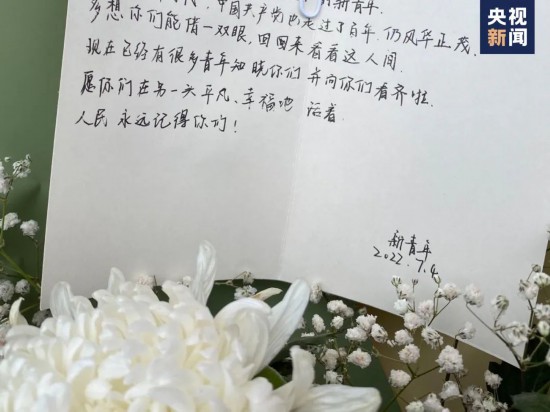 央视
新闻
中国共产党也走过了百年，仍风华正茂、
多想你们能借一双眼，回来看看这人间.
现在已经有很多青年知晓你们并向你们看齐啦.
愿你们在另一头平凡、幸福地 活着.
人民 永远记得你们！
新青年
2022.7.4